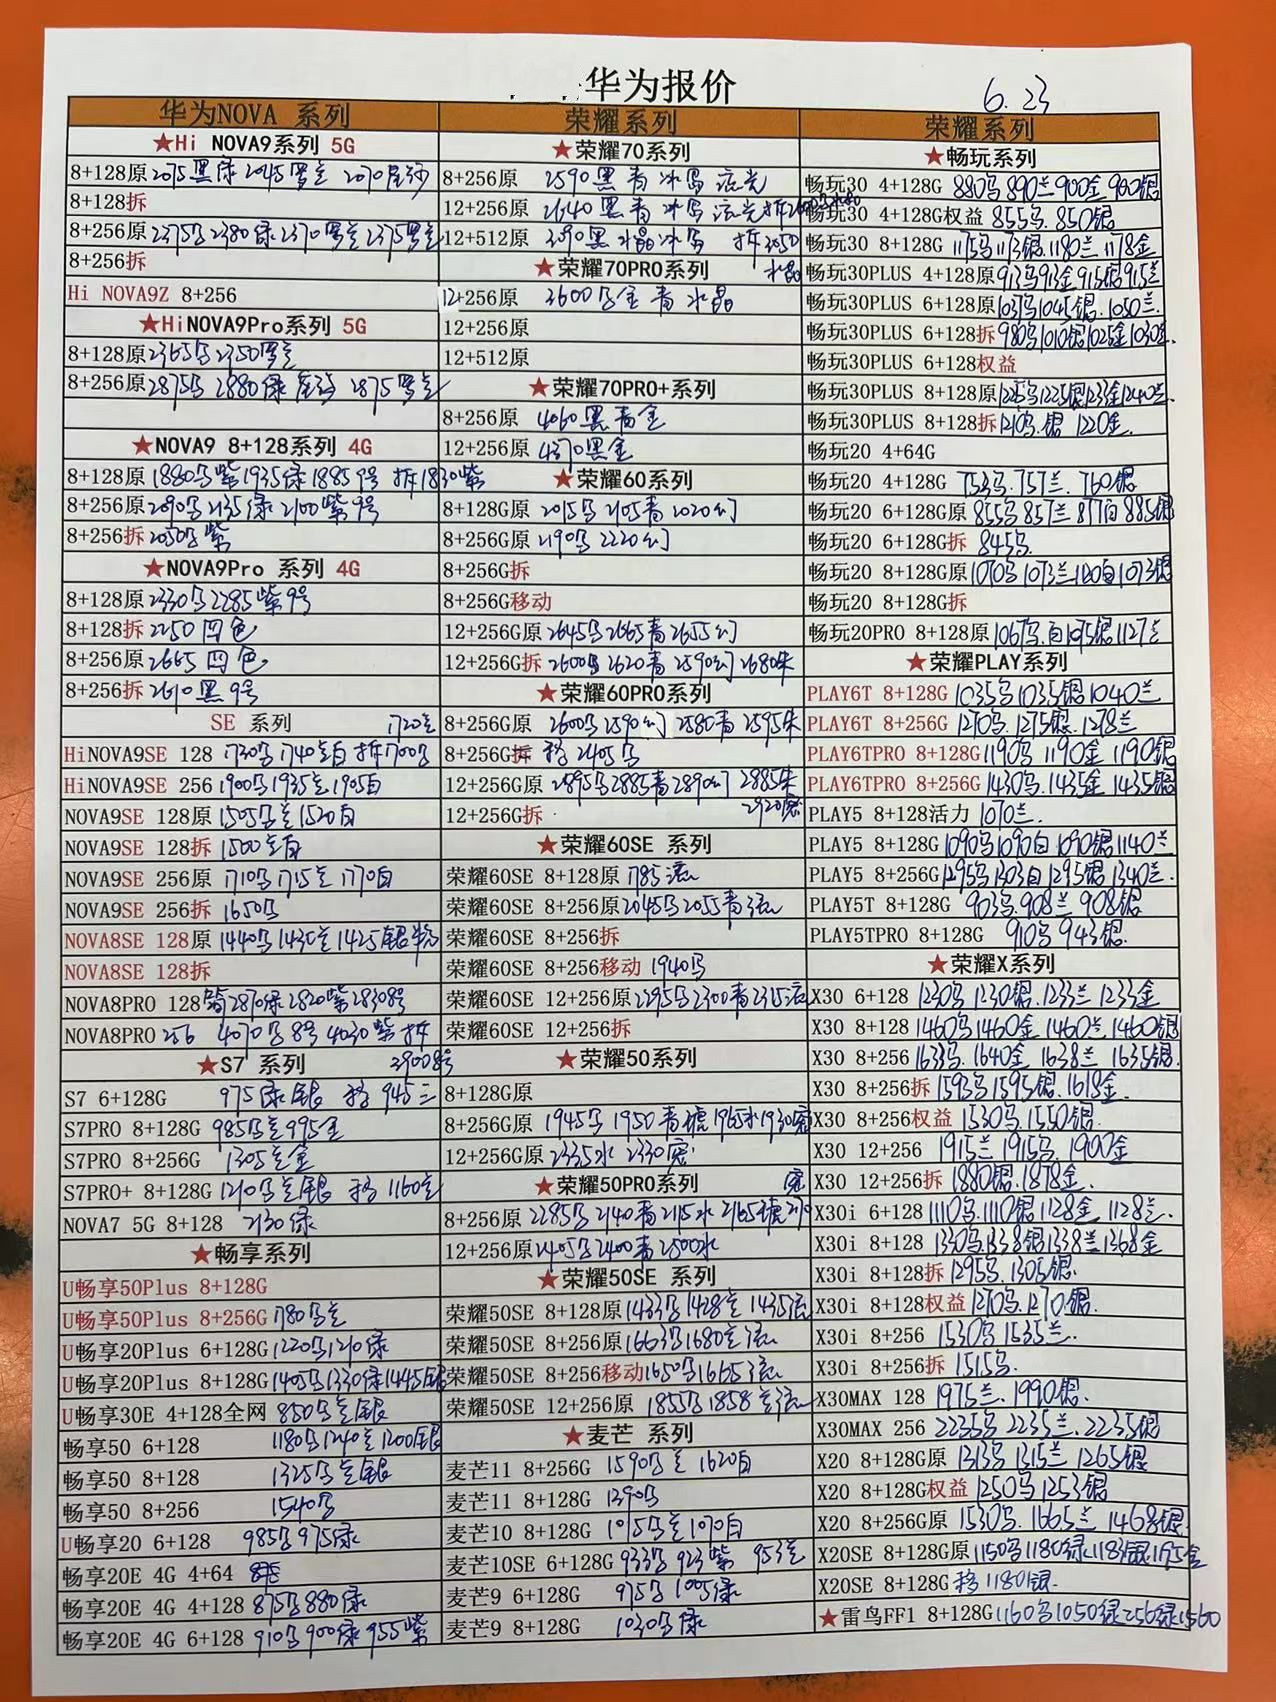 华为报价
6.23
华为NOVA 系列
★Hi NOVA9系列 5G
8+128原2075黑绿 2045罗兰 2070星沙
8+128拆
8+256原2375马2380绿2370罗兰2375罗兰
8+256拆
Hi NOVA9Z 8+256
★HiNOVA9Pro系列 5G
8+128原2365马2350罗兰
8+256原2875马 2880绿 2875罗兰
★NOVA9 8+128系列 4G
8+128原1880马紫1935绿1885 9号 拆1830紫
8+256原2090马2135绿2100紫9号
8+256拆2050马紫
★NOVA9Pro 系列 4G
8+128原2330马2285紫9号
8+128拆2250四色
8+256原2665四色
8+256拆2610黑9号
SE 系列 1720兰
HiNOVA9SE 128 1730马1740兰白 拆1700马
HiNOVA9SE 256 1900马1935兰1905白
NOVA9SE 128原 1505马兰1520白
NOVA9SE 128拆 1500兰白
NOVA9SE 256原 1710马1715兰1770白
NOVA9SE 256拆 1650马
NOVA8SE 128原 1440马1430兰1425银粉
NOVA8SE 128拆
NOVA8PRO 128 2870绿2820紫2830 8号
NOVA8PRO 256 4070马8号4030紫拆
★S7 系列 2900 8号
S7 6+128G 975绿银 移 945兰
S7PRO 8+128G 985马兰995金
S7PRO 8+256G 1305兰金
S7PRO+ 8+128G 1210马兰银 移1160兰
NOVA7 5G 8+128 2130绿
★畅享系列
U畅享50Plus 8+128G
U畅享50Plus 8+256G 1780马兰
U畅享20Plus 6+128G 1220马1210绿
U畅享20Plus 8+128G 1405马1330绿1445银
U畅享30E 4+128全网 850马兰银
畅享50 6+128 1180马1240兰1200银
畅享50 8+128 1325马兰银
畅享50 8+256 1540马
U畅享20 6+128 985马975绿
畅享20E 4G 4+64
畅享20E 4G 4+128 875马880绿
畅享20E 4G 6+128 910马900绿955紫
荣耀系列
★荣耀70系列
8+256原 2590黑青冰岛流光
12+256原 2640黑青冰岛流光拆2600
12+512原 3090黑水晶冰岛 拆3050
★荣耀70PRO系列 水晶
12+256原 3600马金青水晶
12+256原
12+512原
★荣耀70PRO+系列
8+256原 4060黑青金
12+256原 4370黑金
★荣耀60系列
8+128G原 2015马2105青2020幻
8+256G原 2190马2220幻
8+256G拆
8+256G移动
12+256G原2645马2665青2655幻
12+256G拆2600马2620青2590幻2680朱
★荣耀60PRO系列
8+256G原 2600马2590幻2580青2595朱
8+256G拆 移2405马
12+256G原2895马2885青2890幻2885朱
12+256G拆 2920宽
★荣耀60SE 系列
荣耀60SE 8+128原1785流
荣耀60SE 8+256原2045马2055青流
荣耀60SE 8+256拆
荣耀60SE 8+256移动 1940马
荣耀60SE 12+256原2295马2300青2315流
荣耀60SE 12+256拆
★荣耀50系列
8+128G原
8+256G原1945马1950青墟1965水1930宽
12+256G原2335水 2330宽
★荣耀50PRO系列 宽
8+256原2285马2140青2115水2165墟2110
12+256原2405马2400青2500水
★荣耀50SE 系列
荣耀50SE 8+128原1433马1428兰1435流
荣耀50SE 8+256原1663马1680兰流
荣耀50SE 8+256移动1650马1665流
荣耀50SE 12+256原 1855马1858兰流
★麦芒 系列
麦芒11 8+256G 1590马兰1620白
麦芒11 8+128G 1390马
麦芒10 8+128G 1075马兰1070白
麦芒10SE 6+128G 933马923紫 953兰
麦芒9 6+128G 975马1005绿
麦芒9 8+128G 1030马绿
荣耀系列
★畅玩系列
畅玩30 4+128G 880马890兰900金900银
畅玩30 4+128G权益 855马.850银
畅玩30 8+128G 1175马1173银.1180兰1178金
畅玩30PLUS 4+128原913马913金915银915兰
畅玩30PLUS 6+128原1037马1045银.1050兰.
畅玩30PLUS 6+128拆980马1010银1025金1030兰.
畅玩30PLUS 6+128权益
畅玩30PLUS 8+128原1225马1225银1233金1240兰.
畅玩30PLUS 8+128拆1210马.银 1220金.
畅玩20 4+64G
畅玩20 4+128G 753马.757兰.760银
畅玩20 6+128G原855马857兰877白885银
畅玩20 6+128G拆 845马.
畅玩20 8+128G原1070马1073兰1120白1073银
畅玩20 8+128G拆
畅玩20PRO 8+128原1067马.白1075银1127兰
★荣耀PLAY系列
PLAY6T 8+128G 1035马1035银1040兰
PLAY6T 8+256G 1270马.1275银.1278兰
PLAY6TPRO 8+128G1190马1190金1190银
PLAY6TPRO 8+256G 1430马.1435金1435银
PLAY5 8+128活力 1070兰.
PLAY5 8+128G 1090马1090白1090银1140兰
PLAY5 8+256G1295马1303白1295银1340兰.
PLAY5T 8+128G 903马.908兰 908银
PLAY5TPRO 8+128G 910马943银.
★荣耀X系列
X30 6+128 1230马1230银.1233兰1233金
X30 8+128 1460马1460金.1460兰.1460银
X30 8+256 1633马.1640金.1638兰1635银.
X30 8+256拆 1593马1595银.1618金.
X30 8+256权益 1530马.1550银.
X30 12+256 1915兰1915马.1900金
X30 12+256拆 1880银.1878金.
X30i 6+128 1110马.1110银1128金.1128兰.
X30i 8+128 1330马1338银1338兰1368金
X30i 8+128拆1295马.1305银.
X30i 8+128权益1270马.1270.银.
X30i 8+256 1530马1535兰.
X30i 8+256拆 1515马.
X30MAX 128 1975兰.1990银.
X30MAX 256 2235马2235兰.2235银
X20 8+128G原 1313马1315兰1265银
X20 8+128G权益 1250马1253银
X20 8+256G原 1530马.1665兰1468银.
X20SE 8+128G原1150马1180绿1183银1175金
X20SE 8+128G移1180银.
★雷鸟FF1 8+128G1160马1050绿256绿1560